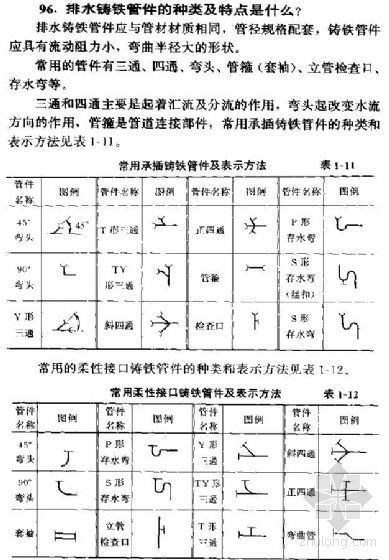 96. 排水铸铁管件的种类及特点是什么?
排水铸铁管件应与管材材质相同,管径规格配套,铸铁管件
应具有流动阻力小,弯曲半径大的形状。
常用的管件有三通、四通、弯头、管箍(套袖)、立管检查口、
存水弯等。
三通和四通主要是起着汇流及分流的作用,弯头起改变水流
方向的作用,管箍是管道连接部件,常用承插铸铁管件的种类和
表示方法见表1-11。
常用承插铸铁管件及表示方法 表1-11
管件名称 图例 管件名称 图例 管件名称 图例 管件名称 图例
45°弯头 45° T形三通 正四通 P形存水弯
90°弯头 TY形三通 管箍 S形存水弯
Y形三通 斜四通 检查口 S形存水弯
常用的柔性接口铸铁管件的种类和表示方法见表1-12。
常用柔性接口铸铁管件及表示方法 表1-12
管件名称 图例 管件名称 图例 管件名称 图例 管件名称 图例
45°弯头 P形存水弯 Y形三通 斜四通
90°弯头 S形存水弯 TY形三通 正四通
套袖 立管检查口 T形三通 弯曲管
zhulong.com